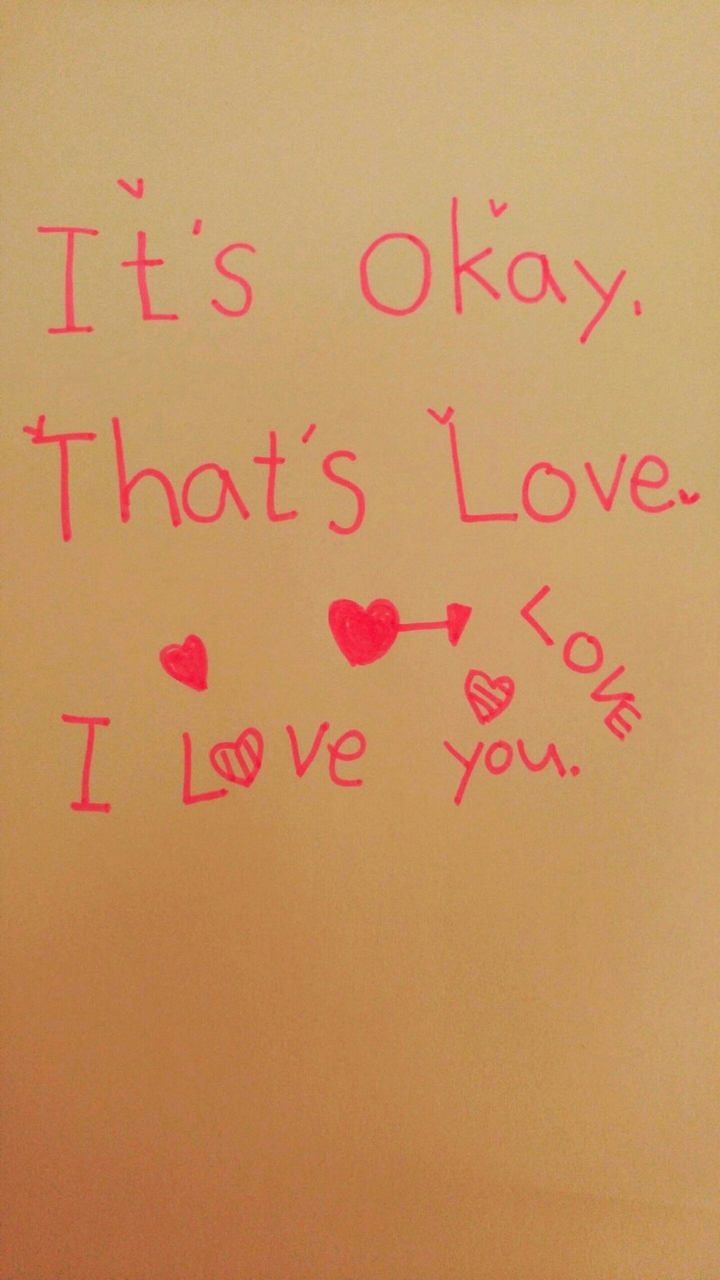 It's okay.
That's Love.
LOVE
I Love you.